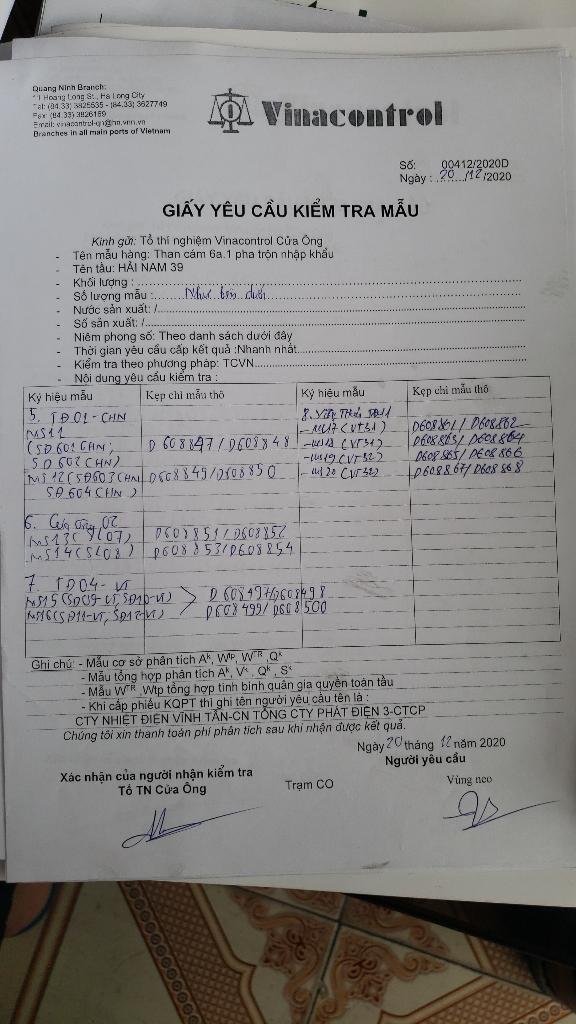 Quang Ninh Branch:
11 Hoang Long St., Ha Long City
Tel: (84.33) 3825535 - (84.33) 3627749
Fax: (84.33) 3826169
Email: vinacontrol-qn@hn.vnn.vn
Branches in all main ports of Vietnam
Vinacontrol
Số: 00412/2020D
Ngày : 20/12/2020
GIẤY YÊU CẦU KIỂM TRA MẪU
Kính gửi: Tổ thí nghiệm Vinacontrol Cửa Ông
- Tên mẫu hàng: Than cám 6a.1 pha trộn nhập khẩu
- Tên tàu: HẢI NAM 39
- Khối lượng :
- Số lượng mẫu : Như bên dưới
- Nước sản xuất: /
- Số sản xuất: /
- Niêm phong số: Theo danh sách dưới đây
- Thời gian yêu cầu cấp kết quả :Nhanh nhất
- Kiểm tra theo phương pháp: TCVN
- Nội dung yêu cầu kiểm tra :
Ký hiệu mẫu Kẹp chì mẫu thô Ký hiệu mẫu Kẹp chì mẫu thô
5. TĐ01-CHN
MS11
(SĐ601 CHN; D608847/D608848
SĐ602 CHN)
MS12(SĐ603CHN D608849/D608850
SĐ604CHN)
- M17(VT31) D608861/D608862
- M18(VT31) D608863/D608864
- M19(VT32) D608865/D608866
- M20(VT32) D608867/D608868
6. Cửa Ông 02
MS13(SL07) D608851/D608852
MS14(SL08) D608853/D608854
7. TĐ04-VT
MS15(SĐ09-VT, SĐ10-VT) D608497/D608498
MS16(SĐ11-VT, SĐ12-VT) D608499/D608500
Ghi chú: - Mẫu cơ sở phân tích Aᵏ, Wtp, Wᵀᴿ ,Qᵏ
- Mẫu tổng hợp phân tích Aᵏ, Vᵏ , Qᵏ , Sᵏ
- Mẫu Wᵀᴿ ,Wtp tổng hợp tính bình quân gia quyền toàn tàu
- Khi cấp phiếu KQPT thì ghi tên người yêu cầu tên là :
CTY NHIỆT ĐIỆN VĨNH TÂN-CN TỔNG CTY PHÁT ĐIỆN 3-CTCP
Chúng tôi xin thanh toán phí phân tích sau khi nhận được kết quả.
Ngày 20 tháng 12 năm 2020
Xác nhận của người nhận kiểm tra Người yêu cầu
Tổ TN Cửa Ông Trạm CO Vùng neo